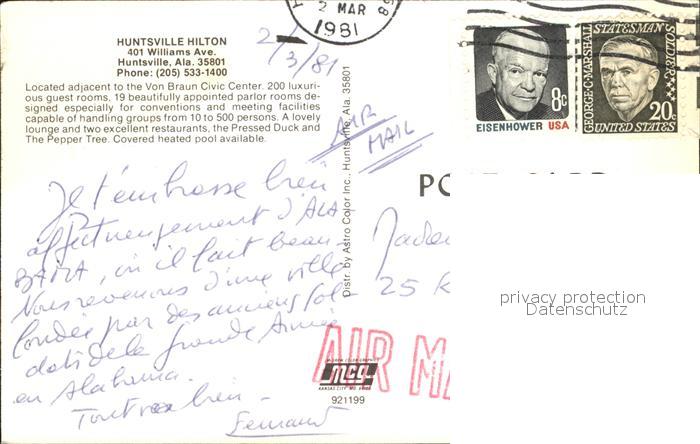 HUNTSVILLE HILTON
401 Williams Ave.
Huntsville, Ala. 35801
Phone: (205) 533-1400
Located adjacent to the Von Braun Civic Center. 200 luxuri-
ous guest rooms, 19 beautifully appointed parlor rooms de-
signed especially for conventions and meeting facilities
capable of handling groups from 10 to 500 persons. A lovely
lounge and two excellent restaurants, the Pressed Duck and
The Pepper Tree. Covered heated pool available.
2/3/81
2 MAR
1981
8c
EISENHOWER USA
GEORGE C. MARSHALL
STATESMAN
SOLDIER
20c
UNITED STATES
AIR
MAIL
Distr. by Astro Color Inc., Huntsville, Ala. 35801
Je t'embrasse bien
affectueusement d'ALA
BAMA, où il fait beau.
Nous revenons d'une ville
fondée par des anciens sol-
dats de la Grande Armée
en Alabama.
Tout va bien -
Fernand
25
AIR MA
mcg
KANSAS CITY, MO.
921199
privacy protection
Datenschutz